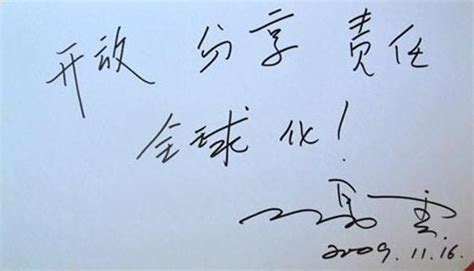 开放 分享 责任
全球化!
马云
2009.11.16.